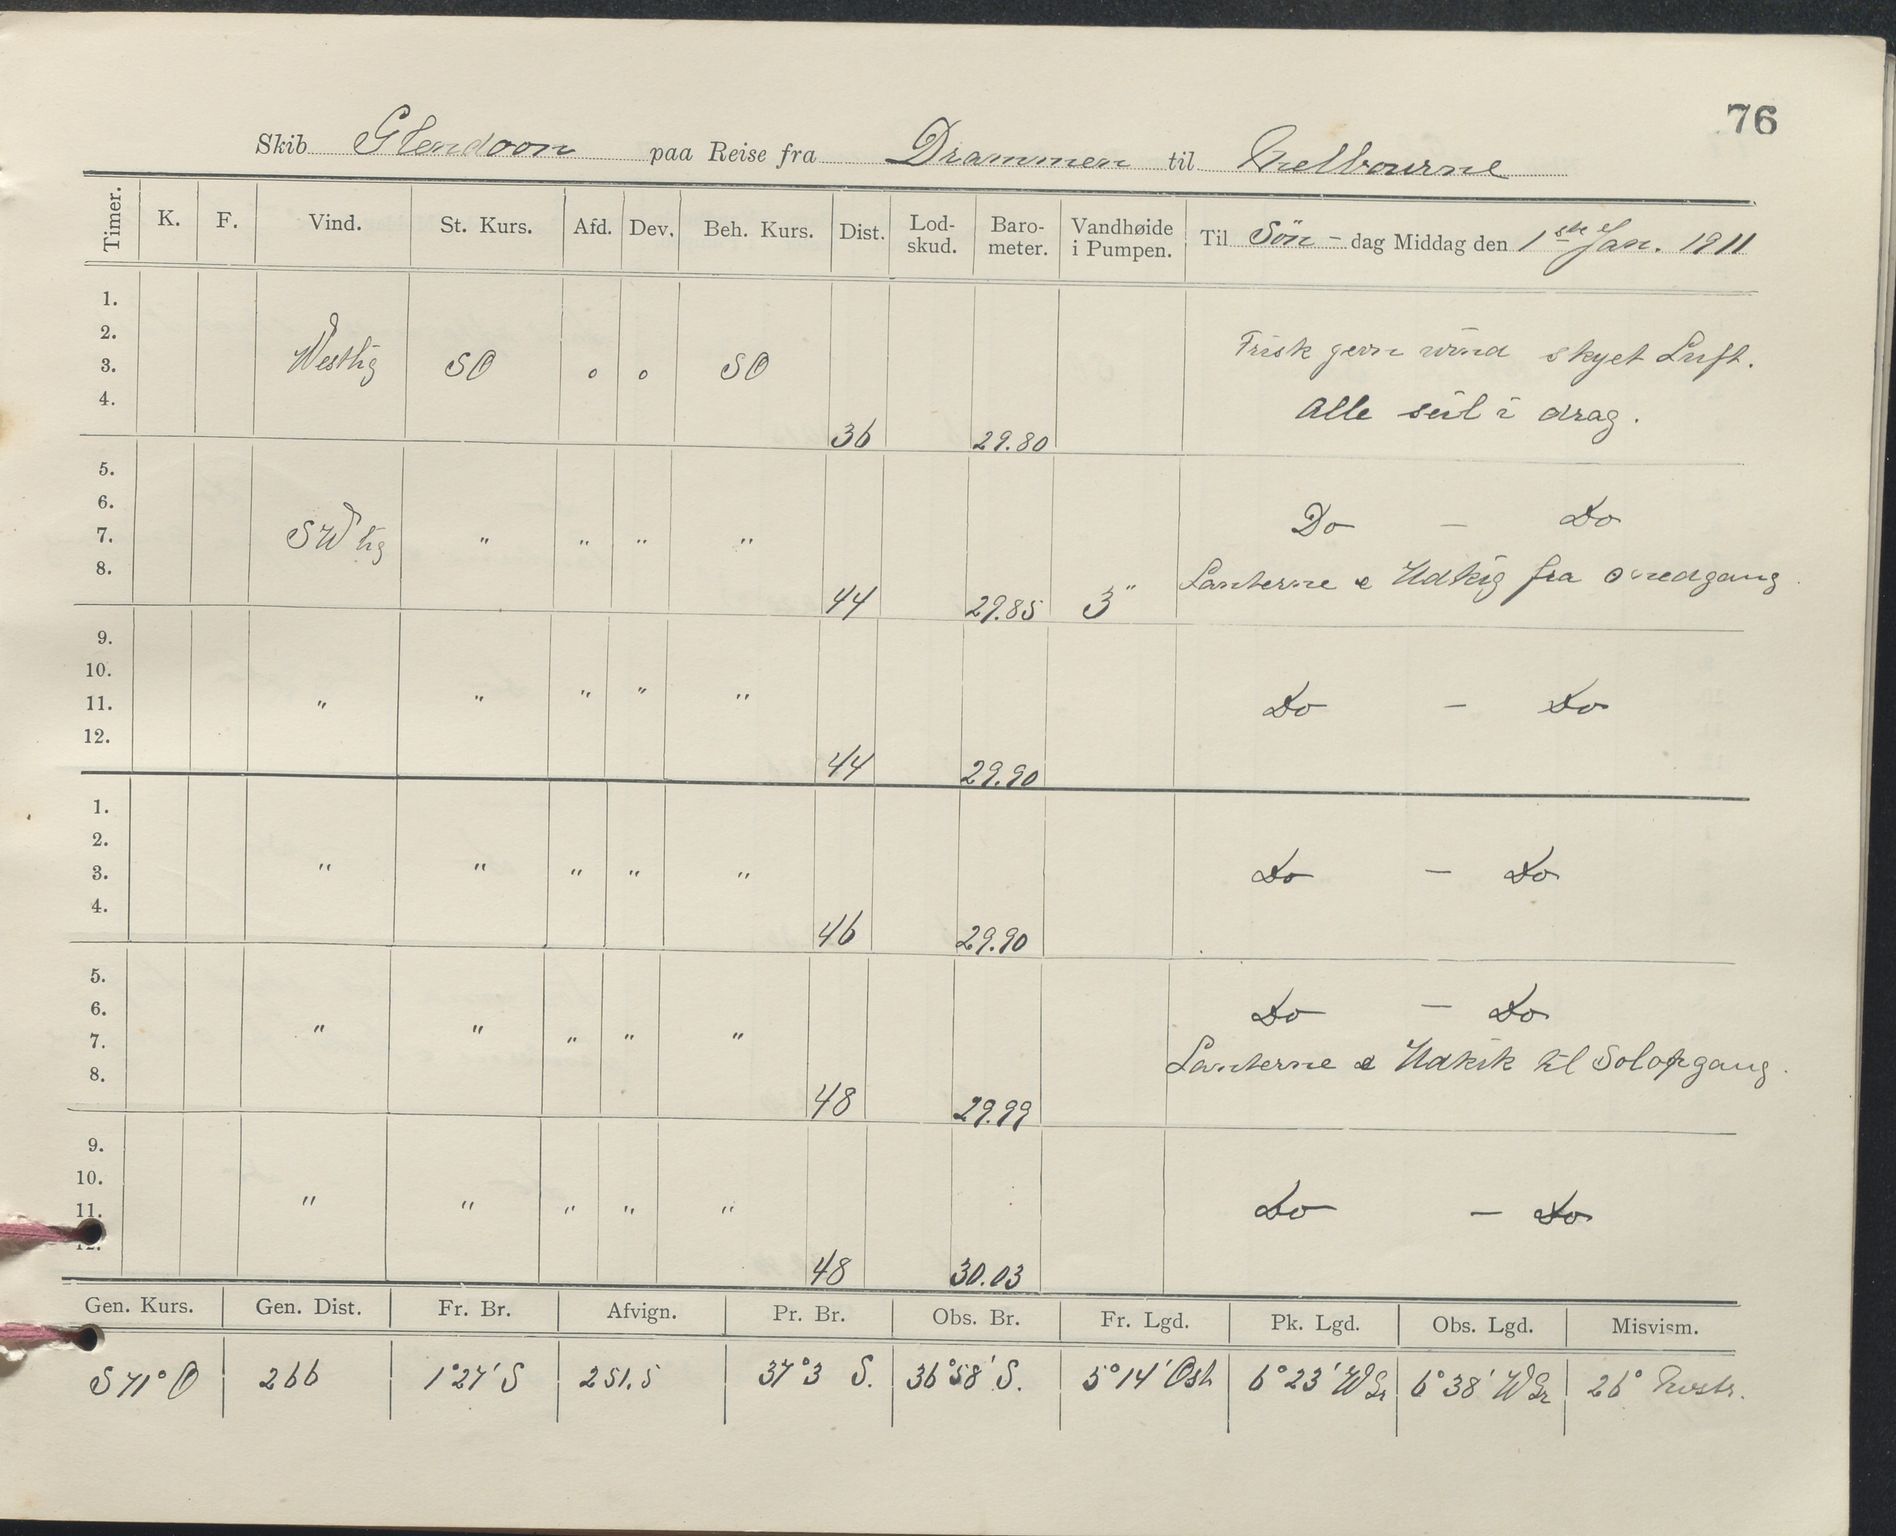 76
Skib Glendoon paa Reise fra Drammen til Melbourne
Timer. K. F. Vind. St. Kurs. Afd. Dev. Beh. Kurs. Dist. Lod-skud. Baro-meter. Vandhøide i Pumpen. Til Søn - dag Middag den 1ste Jan. 1911
1.
2.
3. Westlig SO o o SO Frisk jevn wind skyet Luft.
4. 36 29.80 Alle seil i drag.
5.
6. Do — Do
7. SW lig " " " "
8. 44 29.85 3" Lanterne & Udkig fra
9.
10.
11. " " " " " Do — Do
12. 44 29.90
1.
2.
3. " " " " " Do — Do
4. 46 29.90
5.
6. " " " " " Do — Do
7. Lanterne & Udkik til Solopgang.
8. 48 29.99
9.
10.
11. " " " " " Do — Do
12. 48 30.03
Gen. Kurs. Gen. Dist. Fr. Br. Afvign. Pr. Br. Obs. Br. Fr. Lgd. Pk. Lgd. Obs. Lgd. Misvism.
S 71° O 266 1°27' S 251.5 37°3 S. 36°58' S. 5°14' Ost 6°23' W Gr 6°38' W Gr 26°